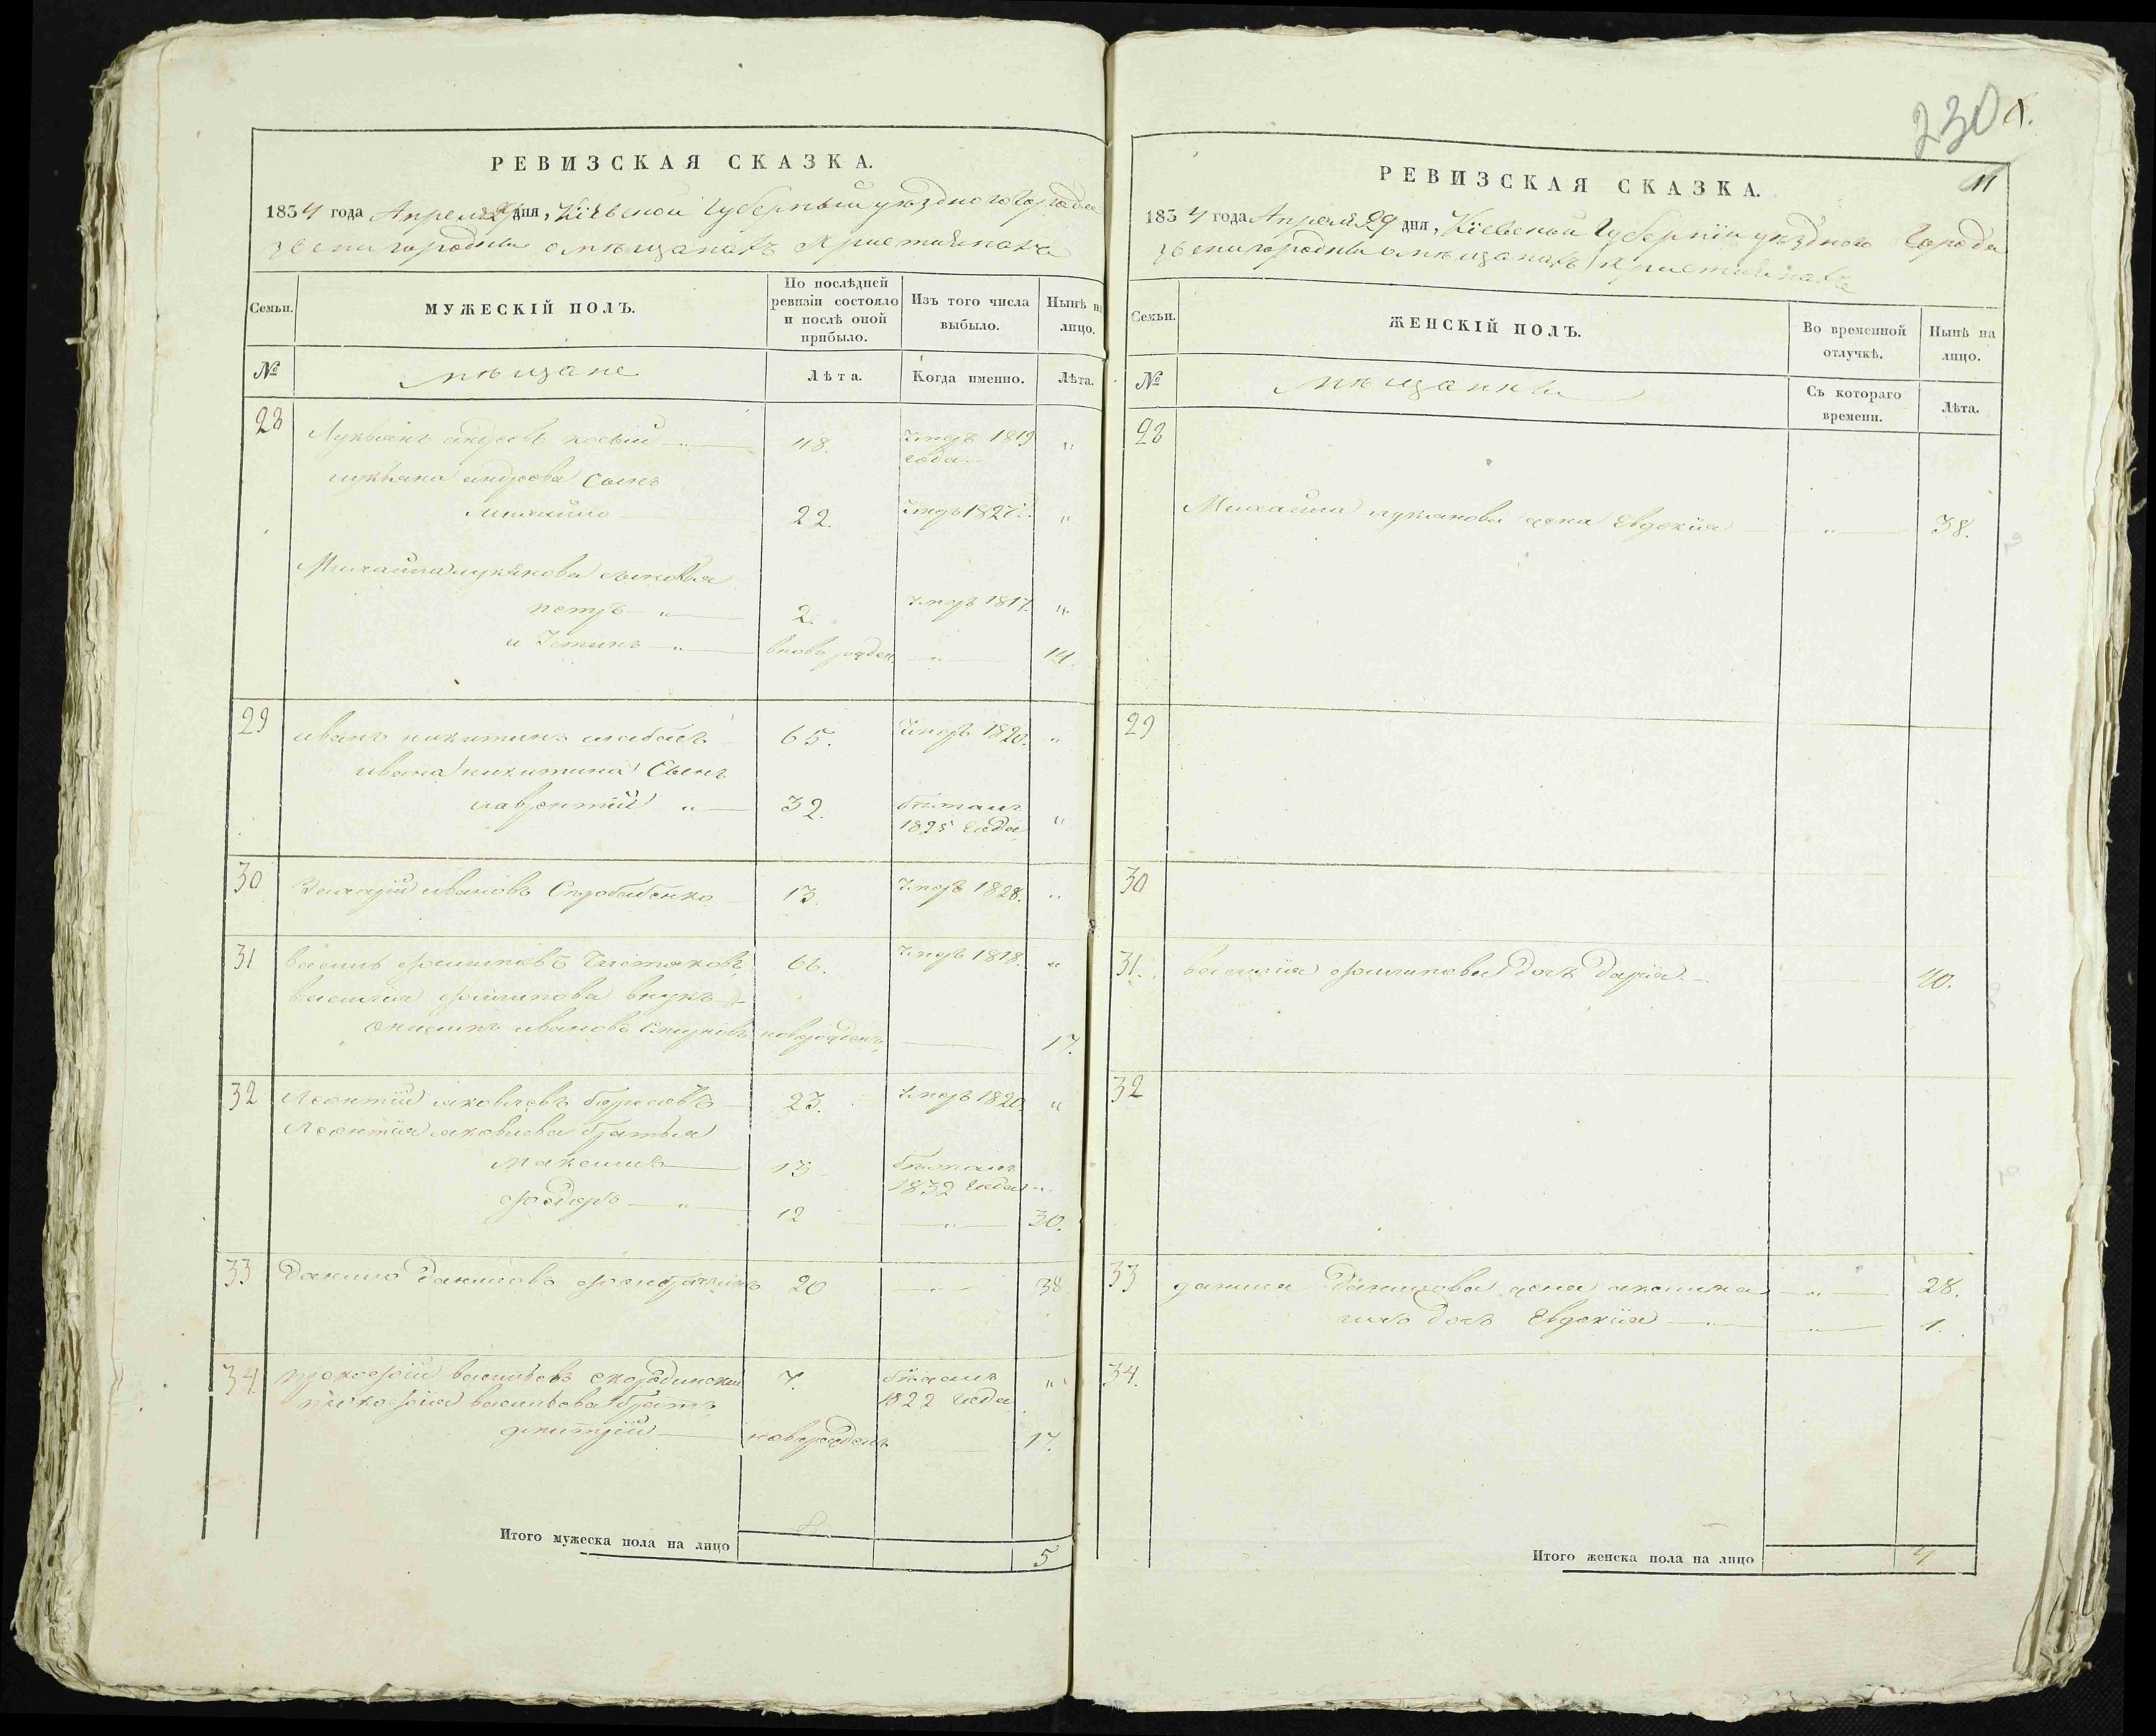 230
РЕВИЗСКАЯ СКАЗКА.
1834 года Апреля 29 дня, Кіевской Губерніи уѣзднаго Города
Звенигородки о мѣщанахъ Христіянахъ
Семьи.
МУЖЕСКІЙ ПОЛЪ.
По послѣдней ревизіи состояло и послѣ оной прибыло.
Изъ того числа выбыло.
Нынѣ на лицо.
№
мѣщане
Лѣта.
Когда именно.
Лѣта.
28
Лукьянъ андреевъ
48.
Умеръ 1819 года
"
лукьяна андреева Сынъ
Михайло
22.
Умеръ 1827
"
Михайла лукянова сыновья
петръ "
2.
Умеръ 1817.
"
и Устинъ "
вновь рожден
"
14.
29
иванъ никитинъ
65.
Умеръ 1820.
"
ивана никитина Сынъ
лаврентій "
32.
бѣжалъ 1825 Года
"
30
ивановъ
13.
Умеръ 1828.
"
31
василь филиповъ
66.
Умеръ 1818.
"
василія филипова внукъ
ивановъ
новорожденъ
17.
32
Леонтій яковлевъ борисовъ
23.
Умеръ 1820.
"
Леонтія яковлева братья
Максимъ
13
бѣжалъ 1832 Года
"
Фіодоръ "
12
"
30.
33
Данило Даниловъ
20
"
38
34.
прокофій васильевъ
7.
бѣжалъ 1822 Года
"
прокофія васильева братъ
дмитрій
новорожденъ
17.
Итого мужеска пола на лицо
5
РЕВИЗСКАЯ СКАЗКА.
11
1834 года Апреля 29 дня, Кіевской Губерніи уѣзднаго Города
Звенигородки о мѣщанахъ Христіянахъ
Семьи.
ЖЕНСКІЙ ПОЛЪ.
Во временной отлучкѣ.
Нынѣ на лицо.
№
мѣщанки
Съ котораго времени.
Лѣта.
28
Михайла лукянова жена Евдокія
"
38.
29
30
31.
василія филипова дочь Дарія
40.
32
33
данила Данилова жена
"
28.
ихъ дочь Евдокія
"
1.
34.
Итого женска пола на лицо
4